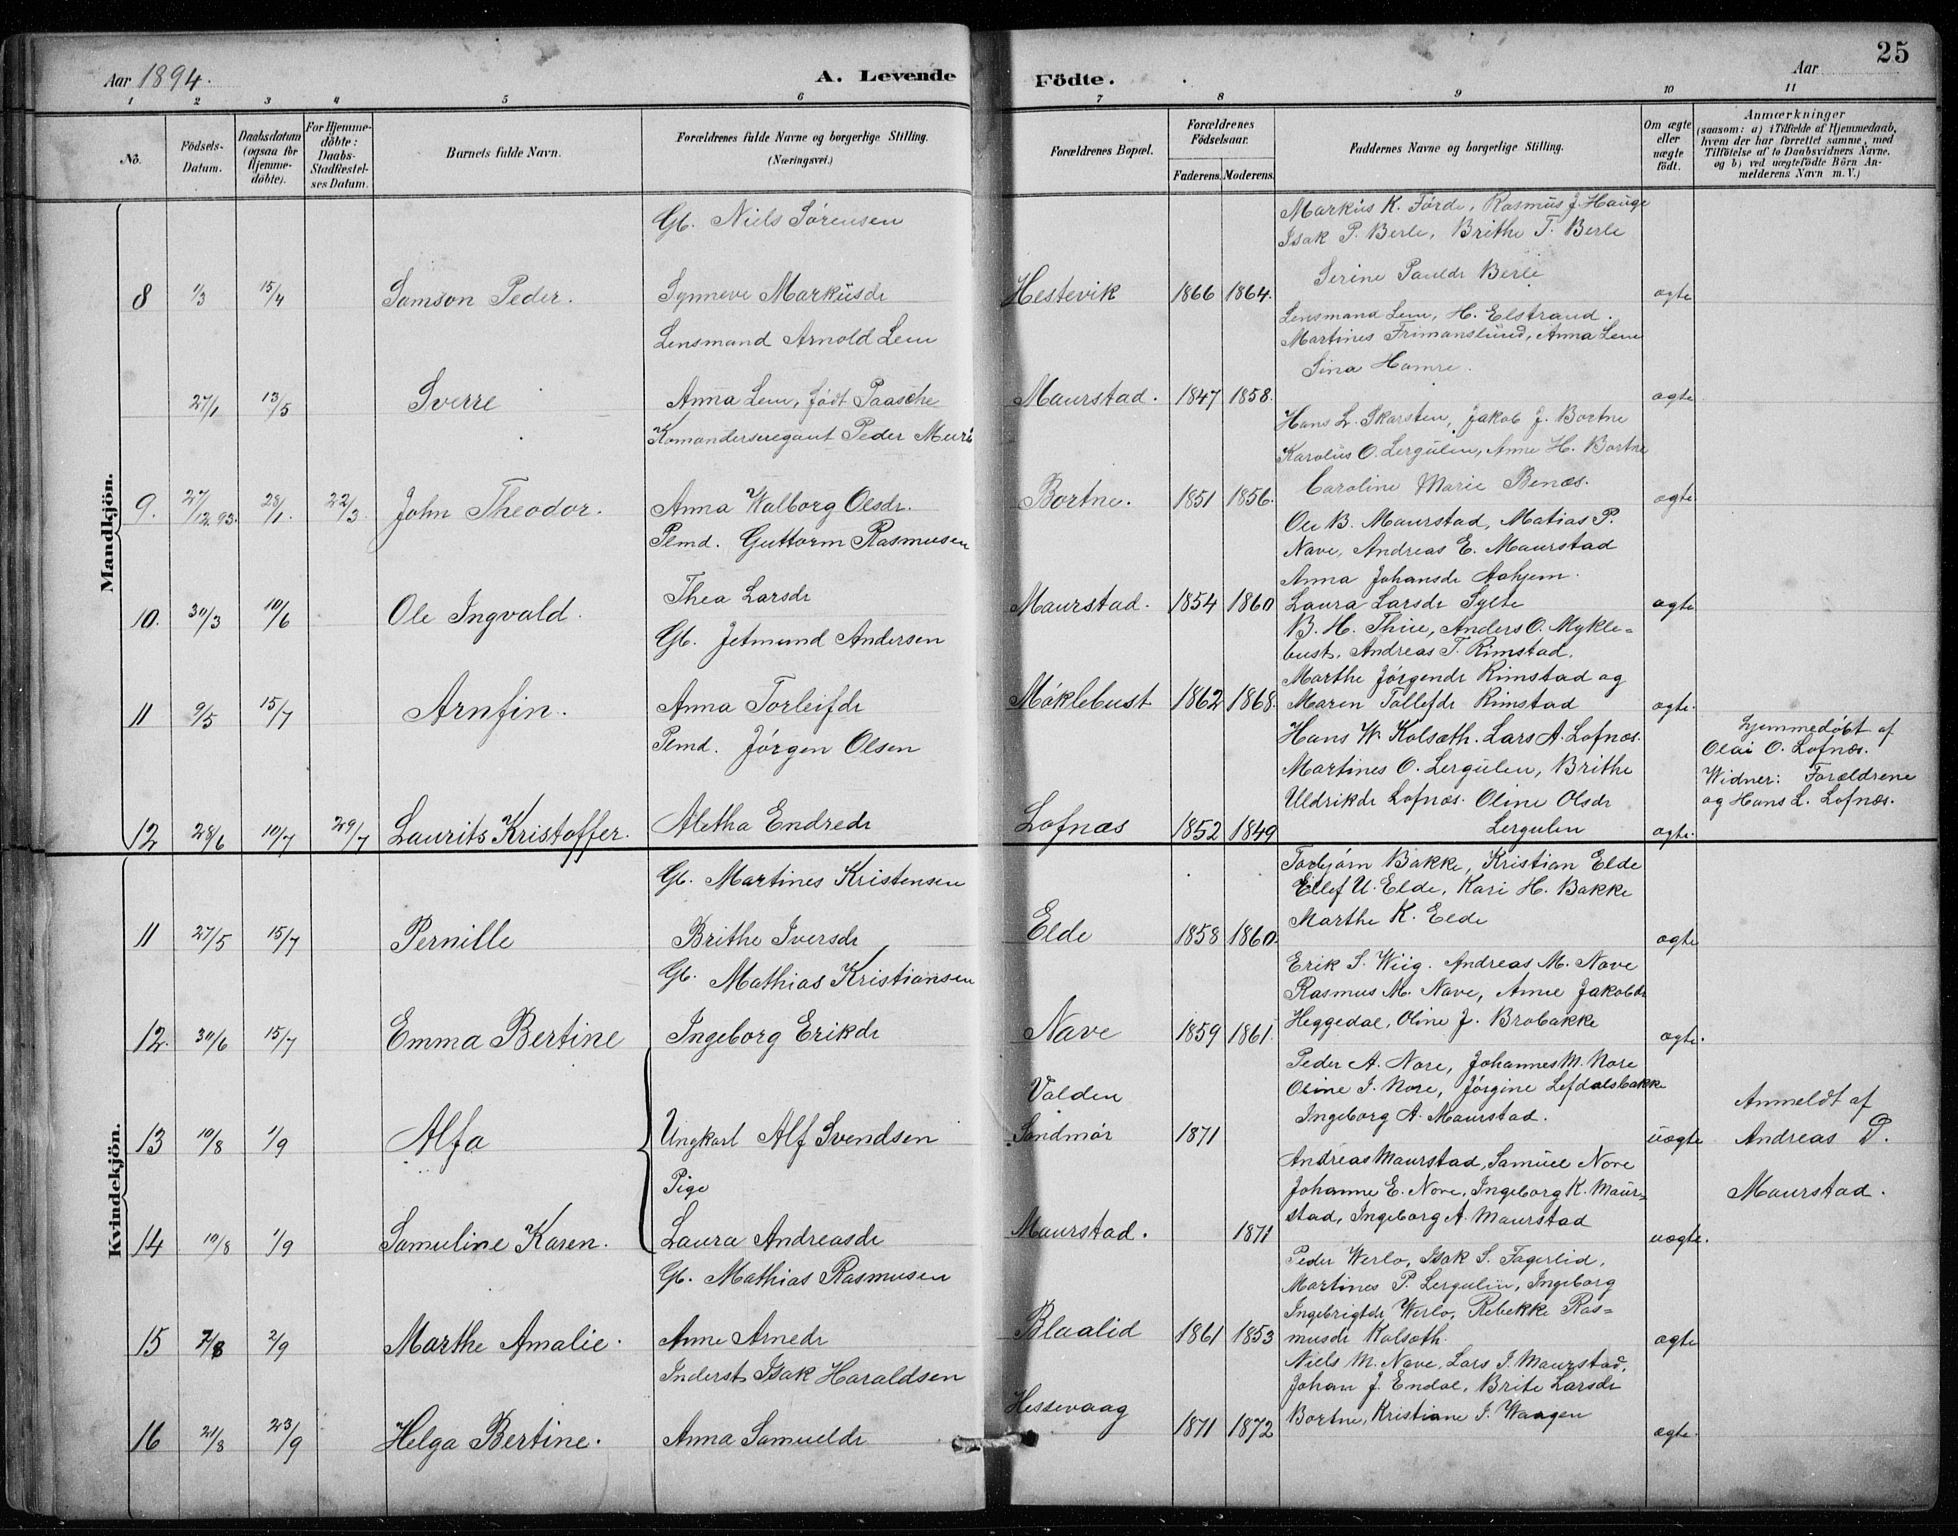 25
Aar 1894.
A. Levende
Födte.
Aar
1 2 3 4 5 6 7 8 9 10 11
No.
Födsels-
Datum.
Daabsdatum
(ogsaa for
Hjemme-
döbte).
For Hjemme-
döbte:
Daabs-
Stadfæstel-
ses Datum.
Barnets fulde Navn.
Forældrenes fulde Navne og borgerlige Stilling.
(Næringsvei.)
Forældrenes Bopæl.
Forældrenes
Födselsaar.
Faderens. Moderens.
Faddernes Navne og borgerlige Stilling.
Om ægte
eller
uægte
födt.
Anmærkninger
(saasom: a) i Tilfælde af Hjemmedaab,
hvem der har forrettet samme, med
Tilföielse af to Daabsvidners Navne,
og b) ved uægtefödte Börn An-
melderens Navn m. V.)
Mandkjön.
Gb. Niels Sørensen
Markus K. Førde, Rasmus J. Hauge
Isak P. Berle, Brithe T. Berle
Serine Pauldr Berle
8 1/3 15/4 Samson Peder. Synneve Markusdr Hestevik 1866 1864. ægte
Lensmand Arnold Lem
Lensmand Lem, H. Elstrand.
Martines Frimanslund, Anna Lem
Sina Hamre.
27/1 13/5 Sverre Anna Lem, født Paasche Maurstad. 1847 1858. ægte
Peder
Hans L. Skarsten, Jakob J. Bortne
Karolus O. Lergulen, Anne H. Bortne
Caroline Marie Benæs.
9. 27/12.93. 28/1. 22/3. John Theodor. Anna Walborg Olsdr. Bortne. 1851 1856. ægte
Plmd. Guttorm Rasmusen
Ole B. Maurstad, Matias P.
Nave, Andreas E. Maurstad
Anna Johansdr Aahjem.
10. 30/3 10/6 Ole Ingvald. Thea Larsdr Maurstad. 1854 1860 Laura Larsdr Sylte ægte
Gb. Jetmund Andersen
B. H. Thue, Anders O. Mykle-
bust, Andreas T. Rimstad,
Marthe Jørgendr Rimstad og
11 9/5 15/7 Arnfin. Anna Torleifdr Møklebust 1862 1868. Maren Tollefdr Rimstad ægte.
Plmd. Jørgen Olsen
Hans W. Kolsæth. Lars A. Lofnæs.
Martines O. Lergulen, Brithe
Uldrikdr Lofnæs. Oline Olsdr
Lergulen
12 28/6 10/7 29/7 Laurits Kristoffer. Aletha Endredr Lofnæs 1852 1849 ægte.
Hjemmedøbt af
Olai O. Lofnæs.
Widner: Forældrene
og Hans L. Lofnæs.
Kvindekjön.
Gb. Martines Kristensen
Torbjørn Bakke, Kristian Elde
Ellef U. Elde, Kari H. Bakke
Marthe K. Elde
11 27/5 15/7 Pernille Brithe Iversdr Elde 1858 1860. ægte
Gb. Mathias Kristiansen
Erik S. Wiig. Andreas M. Nave
Rasmus M. Nave, Anne Jakobdr
Heggedal, Oline J. Brobakke
12. 30/6 15/7 Emma Bertine Ingeborg Erikdr Nave 1859 1861. ægte.
Peder A. Nore, Johannes M. Nore
Oline I. Nore, Jørgine Lefdalsbakke
Ingeborg A. Maurstad.
Valden
13 10/8 1/9 Alfa Ungkarl Alf Svendsen Søndmør 1871 uægte
Anmeldt af
Andreas D.
Maurstad.
Pige
Andreas Maurstad, Samuel Nore
Johanne E. Nore, Ingeborg K. Maur-
stad, Ingeborg A. Maurstad
14 10/8 1/9 Samuline Karen. Laura Andreasdr Maurstad. 1871 uægte.
Gb. Mathias Rasmusen
Peder Werlo, Isak S. Fagerlid,
Martines P. Lergulen, Ingeborg
Ingebrigtdr Werlo, Rebekke Ras-
musdr Kolsæth.
15 7/8 2/9 Marthe Amalie. Anne Arnedr Blaalid 1861 1853 ægte
Inderst Isak Haraldsen
Niels M. Nave, Lars I. Maurstad,
Johan J. Endal, Brite Larsdr
Bortne, Kristiane I. Waagen
16 21/8 23/9 Helga Bertine. Anna Samueldr Hessevaag 1871 1872 ægte.